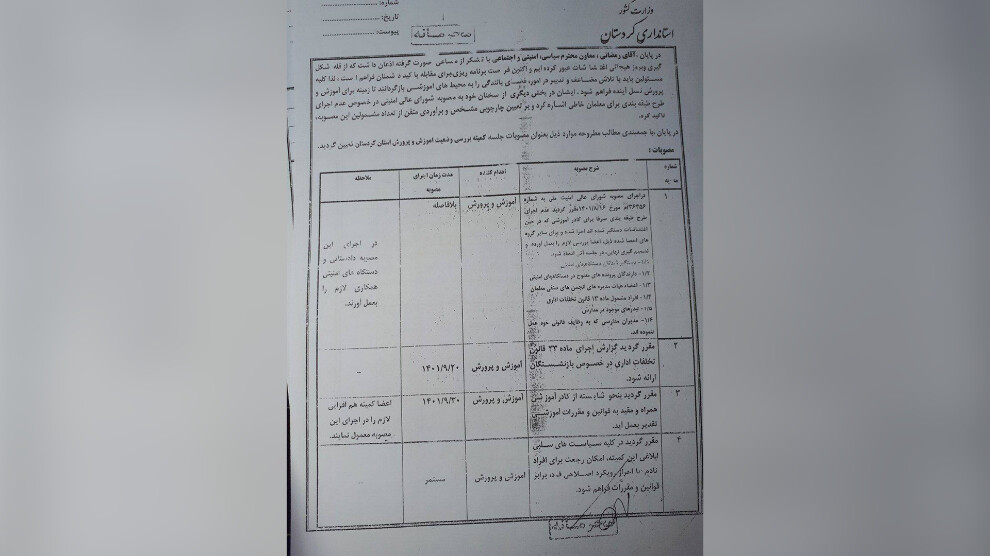 وزارت کشور
استانداری کردستان
شماره:
تاریخ:
پیوست:
محرمانه
در پایان ،آقای رمضانی ، معاون محترم سیاسی، امنیتی و اجتماعی با تشکر از مساعی صورت گرفته اذعان داشت که از قله شکل
گیری عبور کرده ایم و اکنون فرصت برنامه ریزی برای مقابله با کید دشمنان فراهم است ، لذا کلیه
مسئولین باید با تلاش مضاعف و تدبیر در امور، بالندگی را به محیط های آموزشی بازگردانند تا زمینه برای آموزش و
پرورش نسل آینده فراهم شود . ایشان در بخش دیگری از سخنان خود به مصوبه شورای عالی امنیتی در خصوص عدم اجرای
طرح طبقه بندی برای معلمان خاطی اشاره کرد و بر تعیین چارچوبی مشخص و برآوردی متقن از تعداد مشمولین این مصوبه،
تاکید کرد.
در پایان ،با جمعبندی مطالب مطروحه موارد ذیل بعنوان مصوبات جلسه کمیته بررسی وضعیت آموزش و پرورش استان کردستان تعیین گردید.
مصوبات :
شماره
شرح مصوبه
اقدام کننده
مدت زمان اجرای
مصوبه
ملاحظه
۱
دراجرای مصوبه شورای عالی امنیت ملی به شماره
مورخ ۱۴۰۱/۸/۱۶ مقرر گردید عدم اجرای
طرح طبقه بندی صرفا برای کادر آموزشی که در حین
اغتشاشات دستگیر شده اند اجرا شده و برای سایر گروه
های احصا شده ذیل، اعضا بررسی لازم را بعمل آورده و
تصمیم گیری نهایی، در جلسه آتی اتخاذ شود.
۱/۲- دارندگان پرونده های مفتوح در دستگاههای امنیتی
۱/۳- اعضاء هیات مدیره های انجمن های صنفی معلمان
۱/۴- افراد مشمول ماده ۱۳ قانون تخلفات اداری
۱/۵- لیدرهای موجود در مدارس
۱/۶- مدیران مدارسی که به وظایف قانونی خود عمل
ننموده اند.
آموزش و پرورش
بلافاصله
در اجرای این
مصوبه دادستانی و
دستگاه های امنیتی
همکاری لازم را
بعمل آورند.
۲
مقرر گردید گزارش اجرای ماده ۲۳ قانون
تخلفات اداری در خصوص بازنشستگان
ارائه شود.
آموزش و پرورش
۱۴۰۱/۹/۲۰
-
۳
مقرر گردید بنحو شایسته از کادر آموزشی
همراه و مقید به قوانین و مقررات آموزشی
تقدیر بعمل آید.
آموزش و پرورش
۱۴۰۱/۹/۳۰
اعضا کمیته هم افزایی
لازم را در اجرای این
مصوبه معمول نمایند.
۴
مقرر گردید در کلیه سیاست های سلبی
ابلاغی این کمیته، امکان رجعت برای افراد
نادم با احراز رویکرد اصلاحی
قوانین و مقررات فراهم شود.
آموزش و پرورش
مستمر
محرمانه